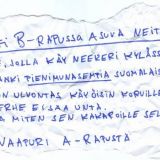 I B-RAPUSSA ASUVA NEITI
, JOLLA KÄY NEEKERI KYLÄSS
ANKI PIENIMUNASEMPIA SUOMALAIS
N ULVONTAS KÄVÖISIN KORVILLE
ERHE EI SAA UNTA.
A MITEN SEN KAKAROILLE SEL
NAAPURI A-RAPUSTA